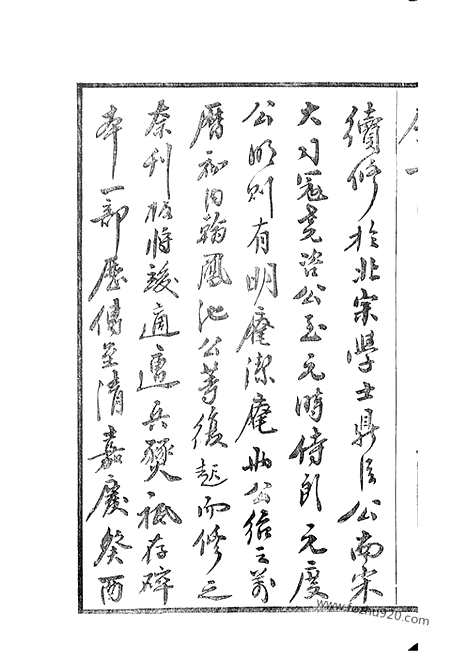 續修於北宋學士鼎臣公南宋
大司寇堯咨公至元時侍郎元度
公明則有明庵潔庵兩公繼之萬
曆初內翰鳳池公等復起而修之
奈刊板將竣適遭兵燹祇存碎
本一部歷傳至清嘉慶癸酉
www.fozhu920.com